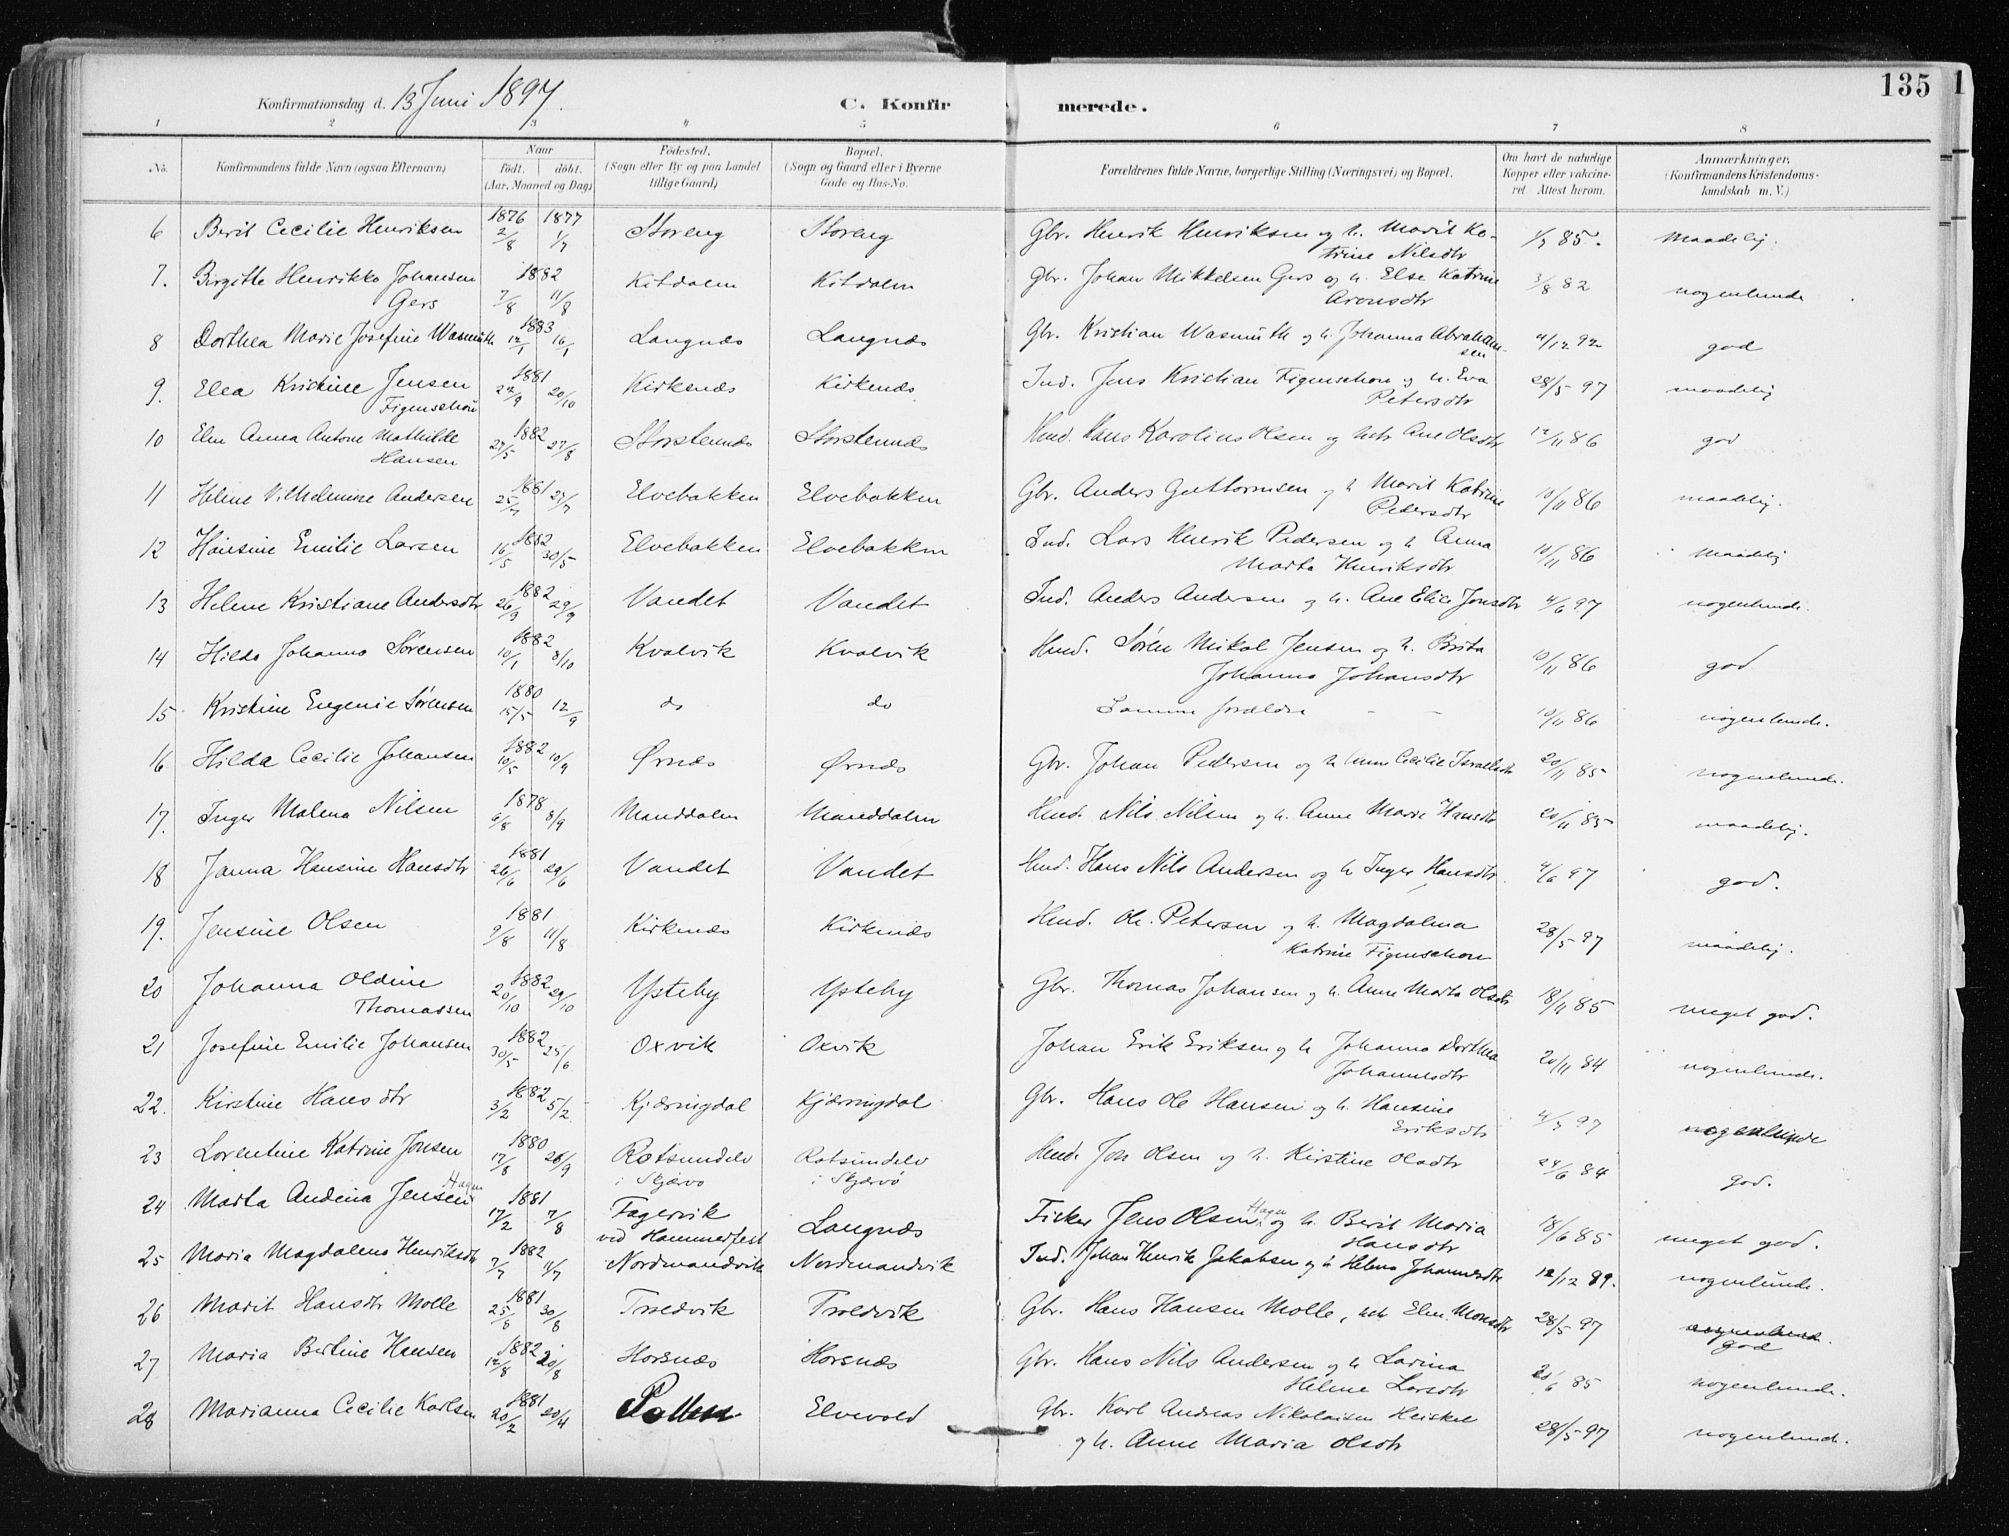 135
Konfirmationsdag d. 13 Juni 1897. C. Konfirmerede.
1 2 3 4 5 6 7 8
No. Konfirmandens fulde Navn (ogsaa Efternavn) Naar født. døbt. (Aar, Maaned og Dag) Fødested. (Sogn eller By og paa Landet tillige Gaard) Bopæl. (Sogn og Gaard eller i Byerne Gade og Hus-No. Forældrenes fulde Navne, borgerlige Stilling (Næringsvei) og Bopæl. Om havt de naturlige Kopper eller vakcineret. Attest herom. Anmærkninger. (Konfirmandens Kristendomskundskab m. V.)
6 Berit Cecilie Henriksen 1876 2/8 1877 1/7 Storeng Storeng Gbr. Henrik Henriksen og h. Marit Katrine Nilsdtr 1/7 85. maadelig.
7. Birgitte Henrikke Johansen Gers 1882 7/8 11/8 Kitdalen Kitdalen Gbr. Johan Mikkelsen Gers og h. Else Katrine Aronsdtr 3/8 82 nogenlunde
8 Dorthea Marie Josefine Wasmuth 1883 12/1 16/1 Langnæs Langnæs Gbr. Kristian Wasmuth og h. Johanna Abrahamsen 4/12 92 god
9. Elea Kristine Jensen Figenschou 1881 22/9 20/10 Kirkenæs Kirkenæs. Ind. Jens Kristian Figenschou og h. Eva Petersdtr 28/5 97 maadelig
10 Elen Anna Antone Mathilde Hansen 1882 27/5 27/8 Storstennæs Storstennæs Hmd. Hans Karolius Olsen og hstr Ane Olsdtr 12/11 86 god
11 Helene Vilhelmine Andersen 1881 25/7 27/7 Elvebakken Elvebakken Gbr. Anders Guttormsen og h Marit Katrine Pedersdtr 10/11 86 maadelig.
12 Hansine Emilie Larsen 1882 16/5 30/5 Elvebakken Elvebakken Ind. Lars Henrik Pedersen og h Anna Marta Henriksdtr 10/11 86 maadelig
13 Helene Kristiane Andersdtr 1882 26/9 29/9 Vandet Vandet Ind. Anders Andersen og h. Ane Elise Jonsdtr 4/6 97 nogenlunde.
14 Hilda Johanna Sørensen 1882 10/1 8/10 Kvalvik Kvalvik Hmd. Søren Mikal Jensen og h. Brita Johanna Johansdtr 10/11 86 god
15 Kristine Eugenie Sørensen 1880 15/5 12/9 do do Samme forældre — — 10/11 86 nogenlunde.
16 Hilda Cecilie Johansen 1882 10/5 10/9 Ørnæs Ørnæs Gbr. Johan Pedersen og h Anne Cecilie Israelsdtr 20/11 85 nogenlunde.
17. Inger Malena Nilsen 1878 6/8 8/9 Manddalen Manddalen Hmd. Nils Nilsen og h. Anne Marie Hansdtr 20/11 85 maadelig.
18 Janna Hansine Hansdtr 1881 26/6 29/6 Vandet Vandet Hmd. Hans Nils Andersen og h Inger Hansdtr. 4/6 97 god.
19. Jensine Olsen 1881 9/8 11/8 Kirkenæs Kirkenæs Hmd. Ole Petersen og h. Magdalena Katrine Figenschou 28/5 97 maadelig.
20 Johanna Oldine Thomassen 1882 20/10 29/10 Ysteby Ysteby Gbr. Thomas Johansen og h. Anne Marta Olsdtr 18/11 85 meget god.
21 Josefine Emilie Johansen 1882 30/5 25/6 Oxvik Oxvik Johan Erik Eriksen og h Johanna Dorthea Johannesdtr 20/11 84 nogenlunde.
22. Kirstine Hansdtr 1882 3/2 5/2 Kjærringdal Kjærringdal Gbr. Hans Ole Hansen og h. Hansine Eriksdtr 4/7 97 nogenlunde
23 Lorentine Katrine Jonsen 1880 17/8 26/9 Rotsundelv i Skjærvø Rotsundelv i Skjærvø Hmd. Jon Olsen og h. Kirstine Olsdtr 24/6 84 god.
24 Marta Andina Jensen Hagen 1881 17/2 7/8 Fagervik ved Hammerfest Langnæs Fisker Jens Olsen Hagen og h. Berit Maria Hansdtr 18/6 85 meget god.
25 Maria Magdalena Henriksdtr 1882 2/7 11/7 Nordmandvik Nordmandvik Ind. Johan Henrik Jakobsen og h Helena Johannesdtr 12/12 89. nogenlunde.
26 Marit Hansdtr Molle 1881 25/8 30/8 Trædvik Trædvik Gbr. Hans Hansen Molle, hstr Elen Monsdtr 28/5 97 nogenlunde. god
27 Maria Bertine Hansen 1882 12/8 20/8 Horsnæs Horsnæs Gbr. Hans Nils Andersen og h Larina Helene Larsdtr 20/6 85 nogenlunde.
28 Marianna Cecilie Karlsen 1881 20/2 20/4 Pollen Elvevold Gbr. Karl Andreas Nikolaisen Heiskel og h. Anne Maria Olsdtr 28/5 97 nogenlunde.